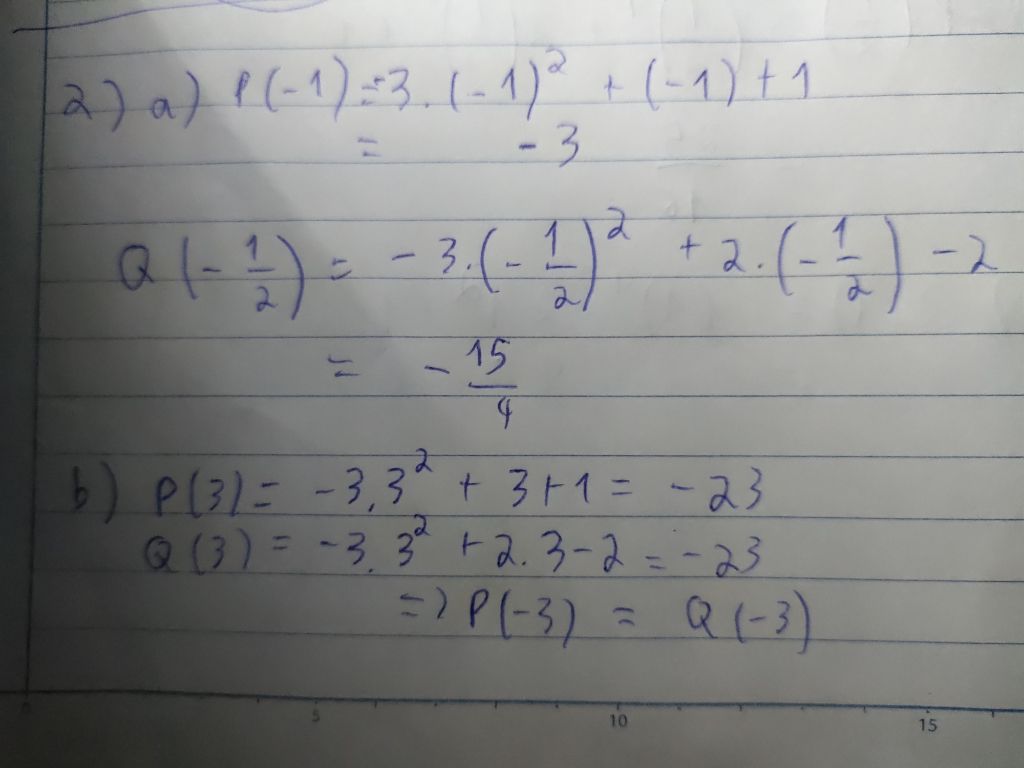 2) a) P(-1) = -3. (-1)² + (-1) + 1
= -3
Q(-1/2) = -3.(-1/2)² + 2.(-1/2) - 2
= -15/4
b) P(3) = -3.3² + 3+1 = -23
Q(3) = -3.3² +2.3-2 = -23
=> P(-3) = Q(-3)
5 10 15